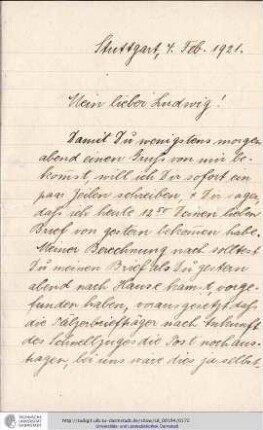 Stuttgart, 4. Feb. 1921.
Mein lieber Ludwig!
Damit Du wenigstens morgen
abend einen Gruß von mir be-
komst, will ich Dir sofort ein
paar Zeilen schreiben, & Dir sagen,
daß ich heute 12 Deinen lieben
Brief von gestern bekomen habe.
Meiner Berechnung nach solltest
Du meinen Brief als Du gestern
abend nach Hause kamst, vorge-
funden haben, vorausgesetzt daß
die Pfälzerbriefträger nach Ankunft
des Schnellzuges die Post noch aus-
tragen, bei uns wäre dies ja selbst-
http://tudigit.ulb.tu-darmstadt.de/show/
Universitäts- und Landesbibliothek Darmstadt